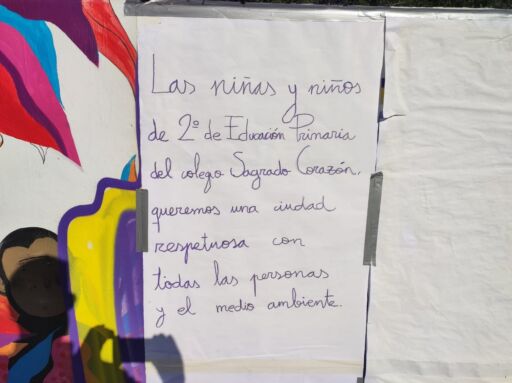 Las niñas y niños
de 2º de Educación Primaria
del colegio Sagrado Corazón,
queremos una ciudad
respetuosa con
todas las personas
y el medio ambiente.